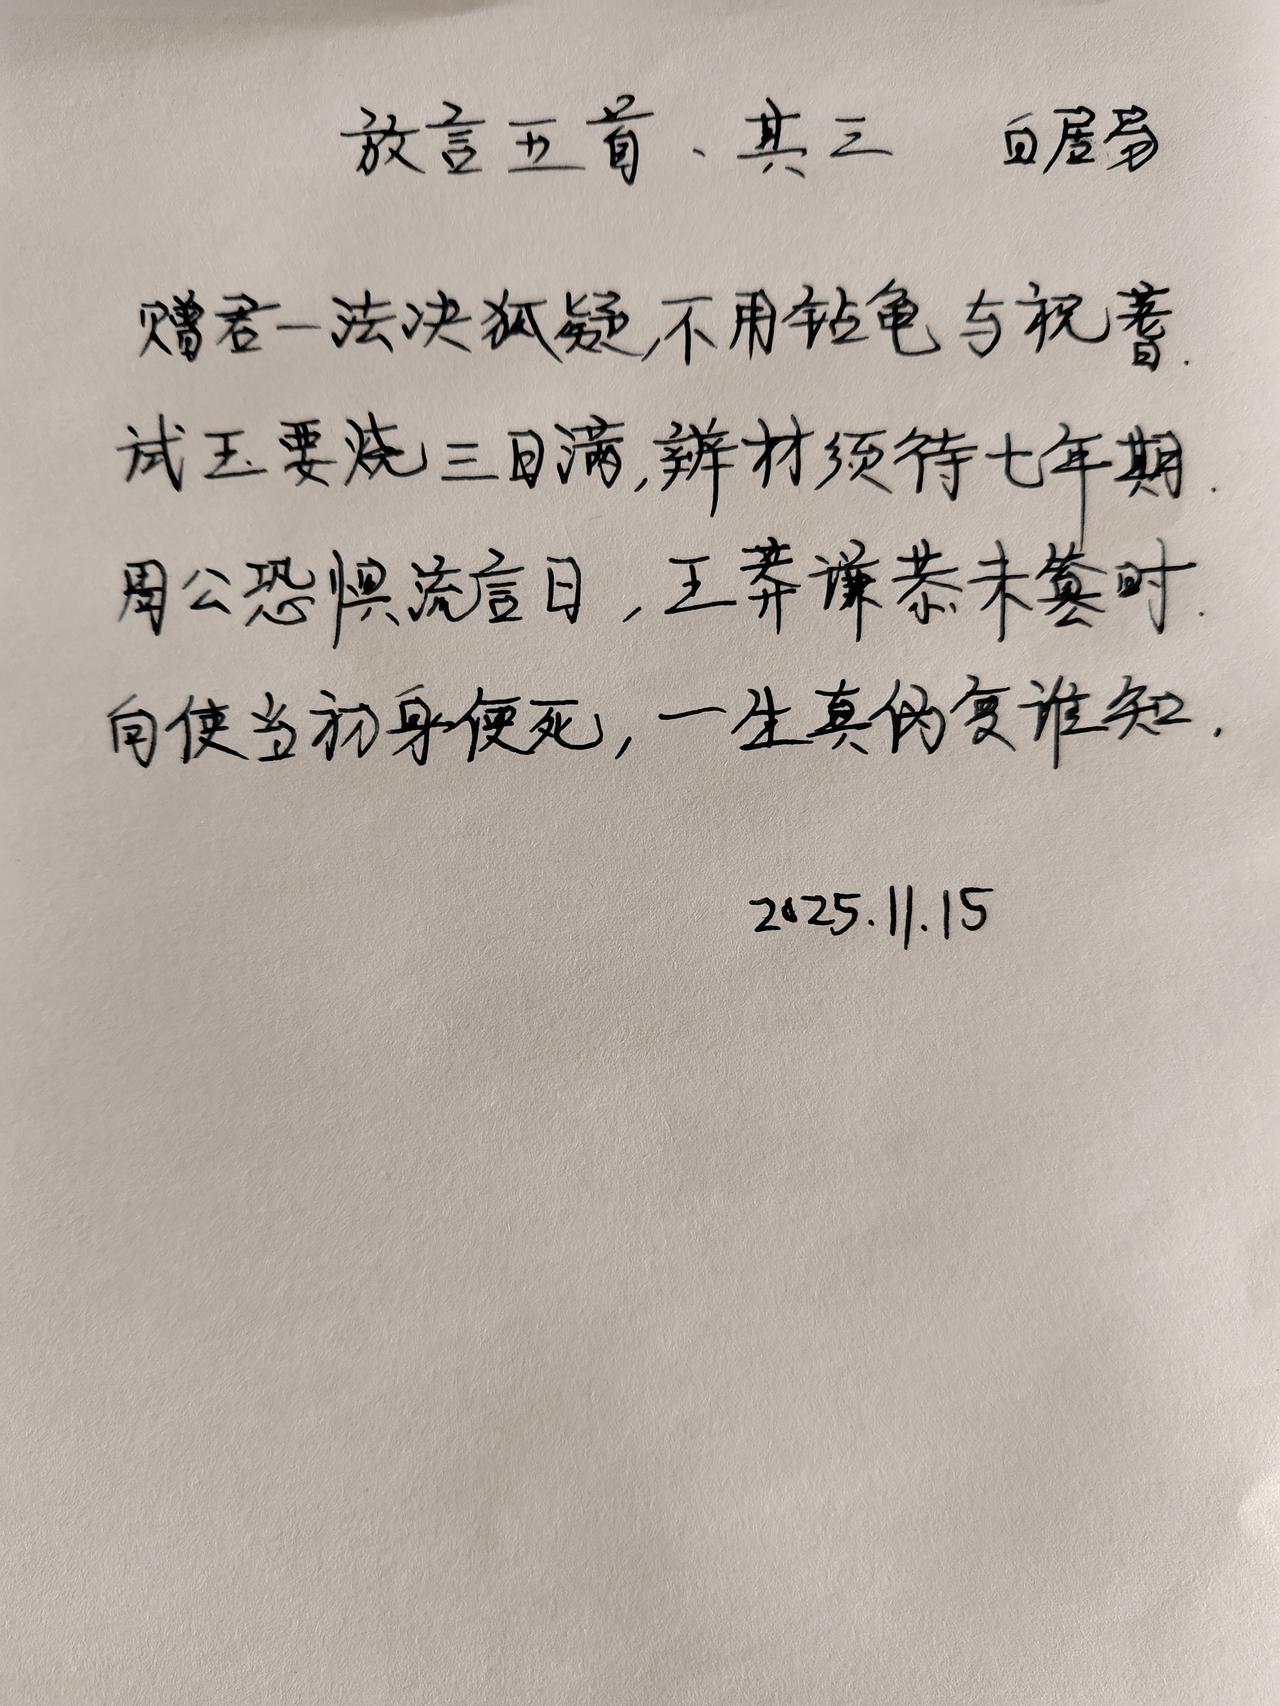 放言五首、其三 白居易
赠君一法决狐疑,不用钻龟与祝蓍.
试玉要烧三日满,辨材须待七年期.
周公恐惧流言日,王莽谦恭未篡时.
向使当初身便死,一生真伪复谁知.
2025.11.15